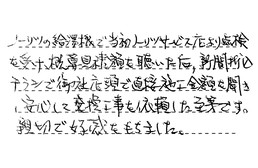 ノーリツの給湯機で当初ノーリツサービス店より点検
を受け、概算見積額を聴いた后、新聞折込
チラシで御社店頭で直接施工金額を聞き
安心して交換工事を依頼した至第です。
親切で好感をもちました。